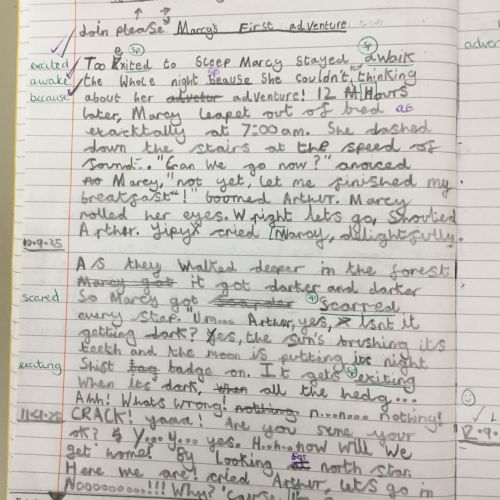 Join please Marcy's First adventure
excited Too Exited to Sleep Marcy stayed awaik
awake the whole night beause She couldn't, thinking
because about her advetur adventure! 12 M Hours
later, Marcy leapet out of bed at
exacktally at 7:00am. She dashed
down the stairs at the speed of
sound... "Can we go now?" anoced
Marcy, "not yet, let me finished my
breakfast"! boomed Arthur. Marcy
rolled her eyes. Wright lets go, Shouted
Arther. Yipyx cried Marcy, delightfully.
12-9-25
As they walked deeper in the forest
Marcy got it got darker and darker
scared So Marcy got scarred
every step. "Um... Arther, yes, isnt it
getting dark? Yes, the sun's brushing its
teeth and the moon is putting its night
exciting Shist badge on. It gets exiting
When its dark, when all the hedg...
Ahh! Whats wrong! nothing n...n... nothing!
CRACK! yaaa! Are you sure your
ok? Y... Y... yes. H..h..how will we
get home? By looking at north star.
Here we are! cried Arthur, lets go in
Nooooooo...!!! Why?
adver